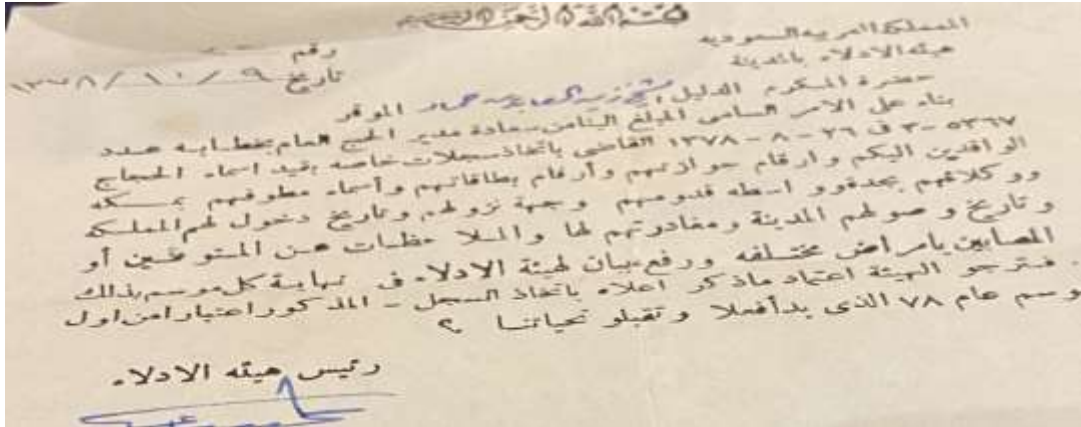 بسم الله الرحمن الرحيم
المملكة العربية السعودية
هيئة الادلاء بالمدينة
رقم
تاريخ ٩ / ١٠ / ١٣٧٨
حضرة المكرم الدليل الموقر
بناء على الامر السامى المبلغ الينا من سعادة مدير الحج العام بخطابه عدد
٥٣٦٧ -٣ ف ٢٦ - ٨ - ١٣٧٨ القاضى باتخاذ سجلات خاصه بقيد اسماء الحجاج
الوافدين اليكم وارقام جوازتهم وأرقام بطاقاتهم وأسماء مطوفهم بمسكه
ووكلائهم بجده واسطه قدومهم وجهة نزولهم وتاريخ دخولهم المملكه
وتاريخ وصولهم المدينة ومغادرتهم لها والملا حظات عن المتوفين أو
المصابين بامراض مختلفه ورفع بيان لهيئة الادلاء فى نهاية كل موسم بذلك
. فترجو الهيئة اعتماد ماذكر اعلاه باتخاذ السجل - المذكور اعتبارا من اول
وسم عام ٧٨ الذى بدأ فعلا وتقبلو تحياتنا ؟
رئيس هيئه الادلاء